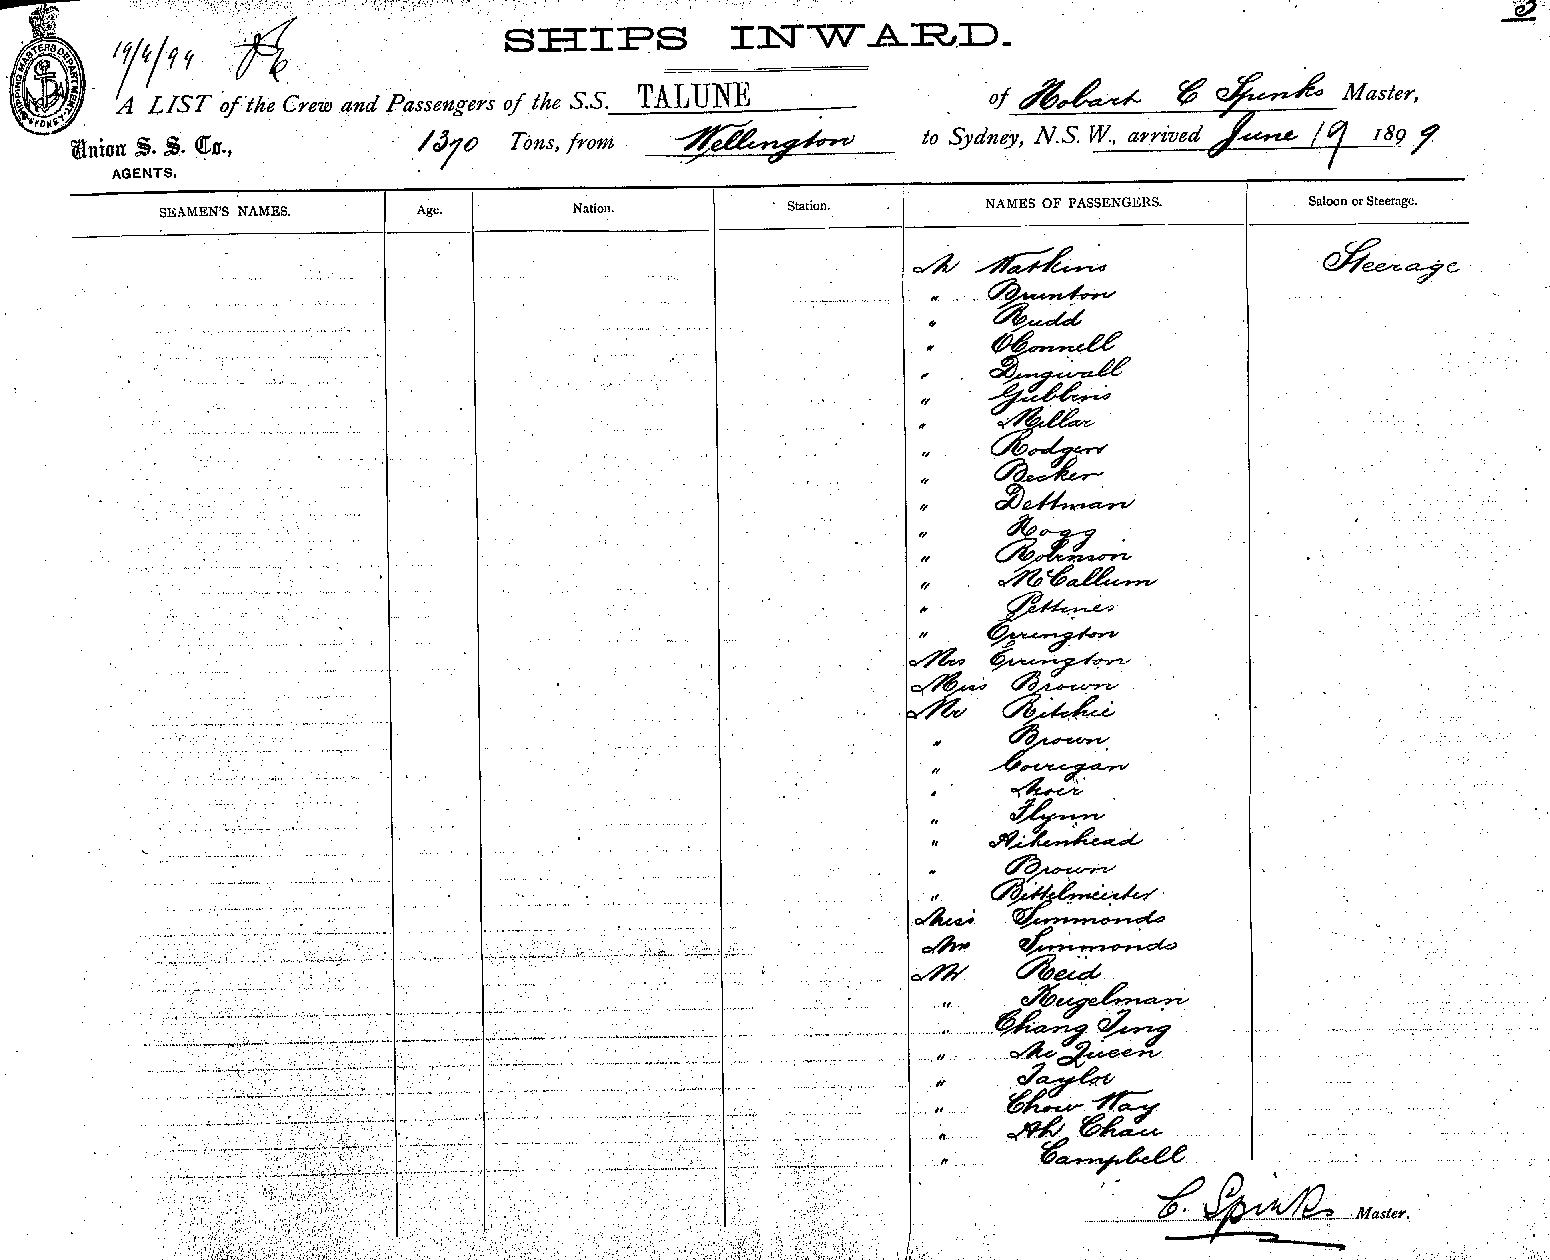 3
SHIPS INWARD.
19/6/99
A LIST of the Crew and Passengers of the S.S. TALUNE of Hobart C Spinks Master,
Union S. S. Co., 1370 Tons, from Wellington to Sydney, N.S.W., arrived June 19 1899
AGENTS.
SEAMEN'S NAMES. Age. Nation. Station. NAMES OF PASSENGERS. Saloon or Steerage.
Mr Watkins Steerage
" Brunton
" Rudd
" O'Connell
" Dingwall
" Gubbins
" Millar
" Rodgers
" Becker
" Dettman
" Hogg
" Robinson
" McCallum
" Pettines
" Errington
Mrs Errington
Miss Brown
Mr Ritchie
" Brown
" Corrigan
" Moir
" Flynn
" Aitkenhead
" Brown
" Bittelmeister
Miss Simmonds
Mrs Simmonds
Mr Reid
" Kugelman
" Chang Ting
" McQueen
" Taylor
" Chow Way
" Ah Chau
" Campbell
C. Spinks Master.